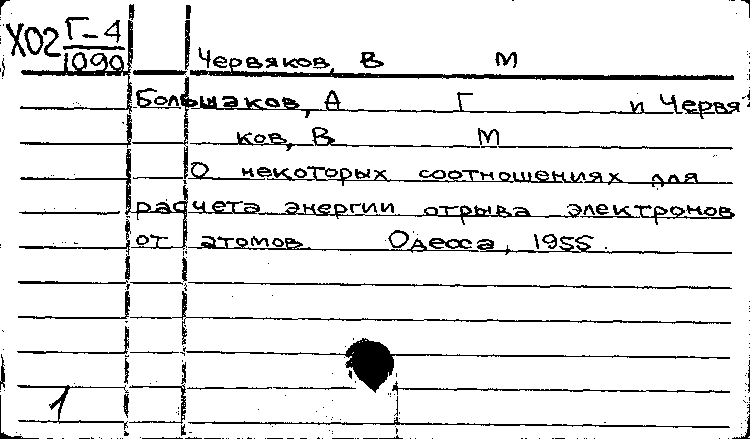 Х02 Г-4
1090
Червяков, В М
Большаков, А Г и Червя-
ков, В М
О некоторых соотношениях для
расчета энергии отрыва электронов
от атомов Одесса, 1955.
1